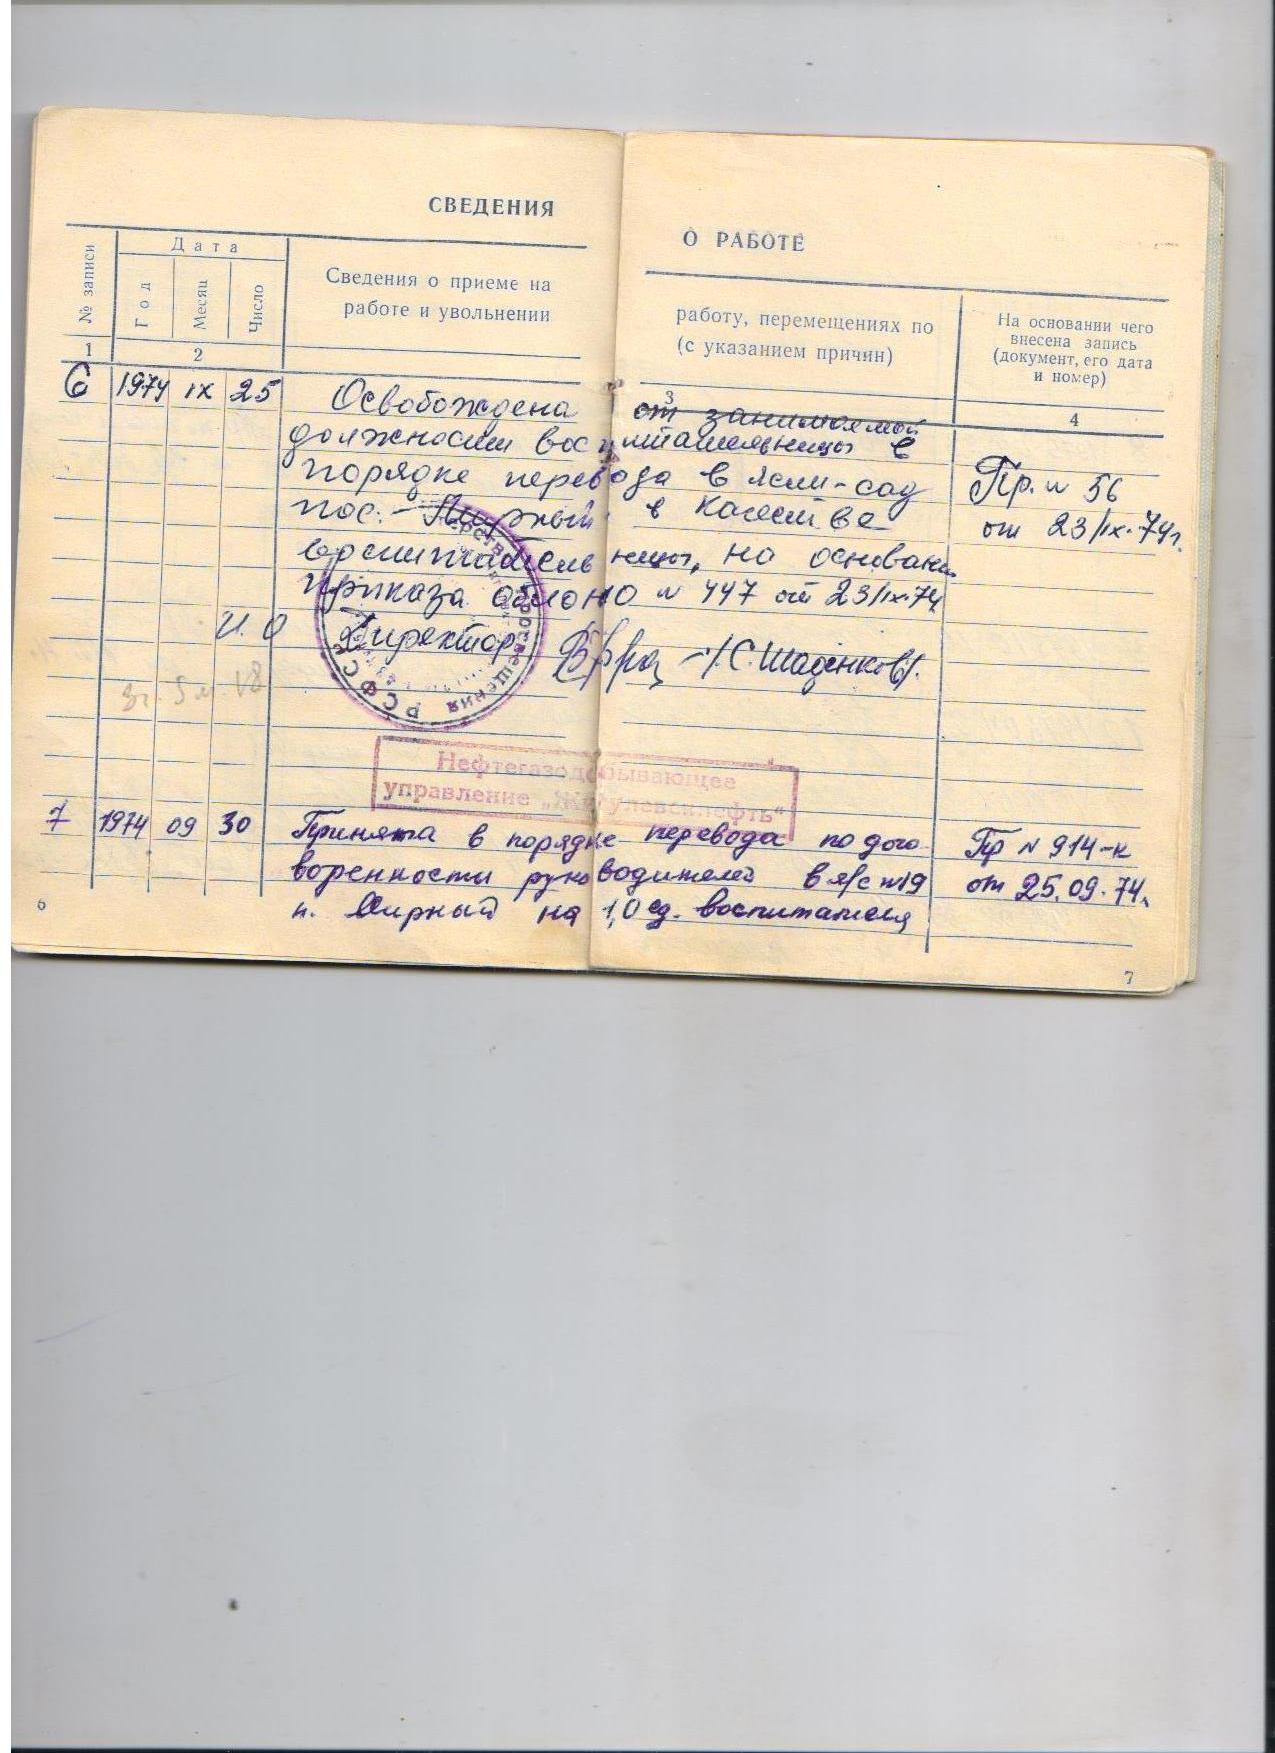 СВЕДЕНИЯ
О РАБОТЕ
№ записи
Дата
Год
Месяц
Число
Сведения о приеме на
работе и увольнении
работу, перемещениях по
(с указанием причин)
На основании чего
внесена запись
(документ, его дата
и номер)
1
2
3
4
6 1974 IX 25 Освобождена от занимаемой
должности воспитательницы в
порядке перевода в ясли-сад Пр. № 56
пос. Мирный в качестве от 23/IX-74г.
воспитательницы, на основани
приказа облоно № 447 от 23/IX-74
И.О Директор С. Шаденков
3г. 5м. 18
РСФСР
просвещения
Нефтегазодобывающее
управление „Жигулевскнефть"
7 1974 09 30 Принята в порядке перевода по дого Пр № 914-к
воренности руководителей в я/с №19 от 25.09.74г.
п. Мирный на 1,0 ед. воспитателя
6
7